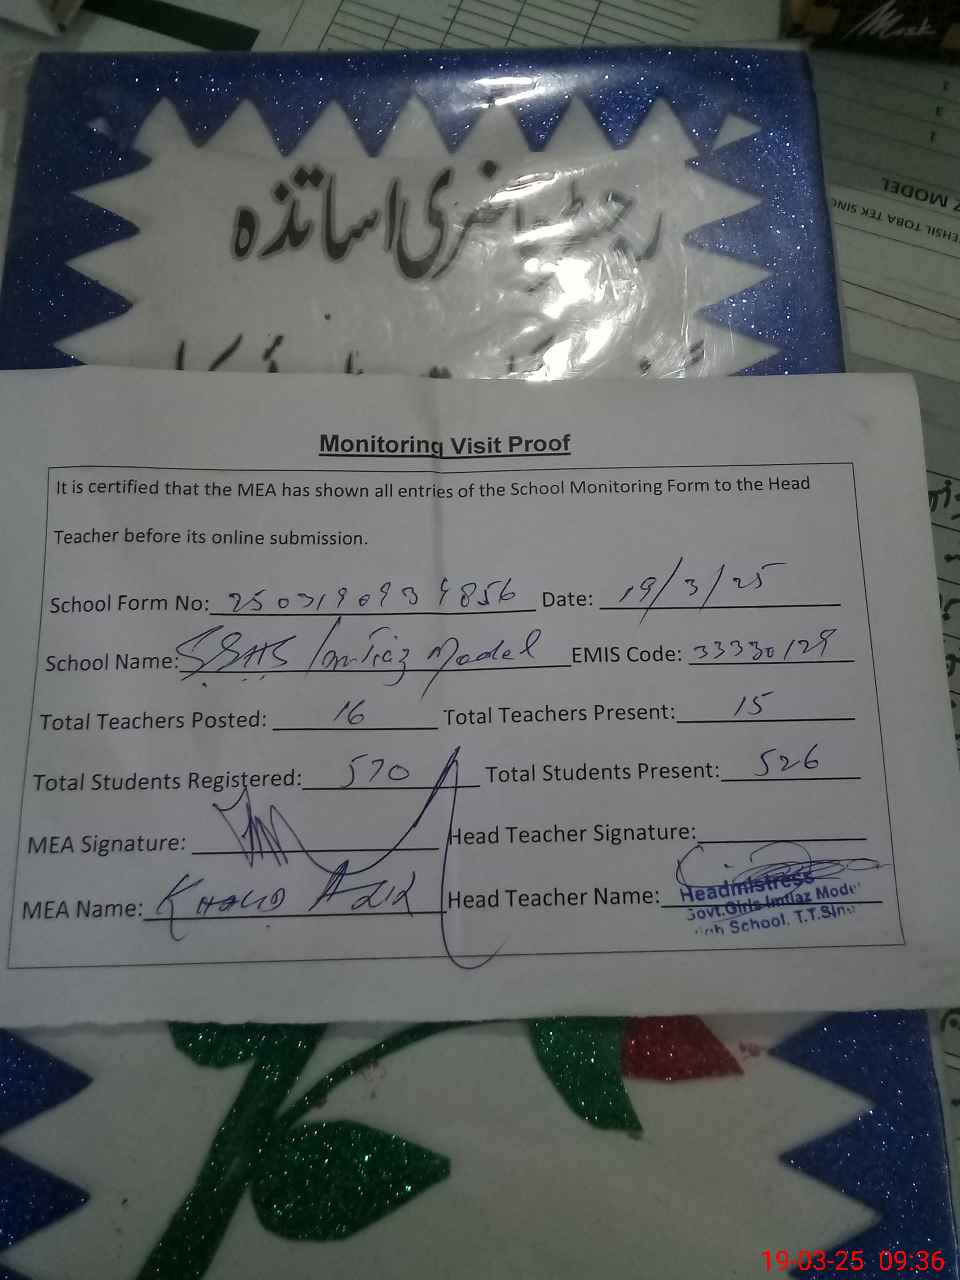 رجسٹر حاضری اساتذہ
Monitoring Visit Proof
It is certified that the MEA has shown all entries of the School Monitoring Form to the Head
Teacher before its online submission.
School Form No: 2503190934856 Date: 19/3/25
School Name: GGHS Imtiaz Model EMIS Code: 33330129
Total Teachers Posted: 16 Total Teachers Present: 15
Total Students Registered: 570 Total Students Present: 526
MEA Signature: Head Teacher Signature:
MEA Name: Khalid Aziz Head Teacher Name:
Headmistress
Govt.Girls Imtiaz Model
High School, T.T.Singh
MODEL
TEHSIL TOBA TEK SING
19-03-25 09:36